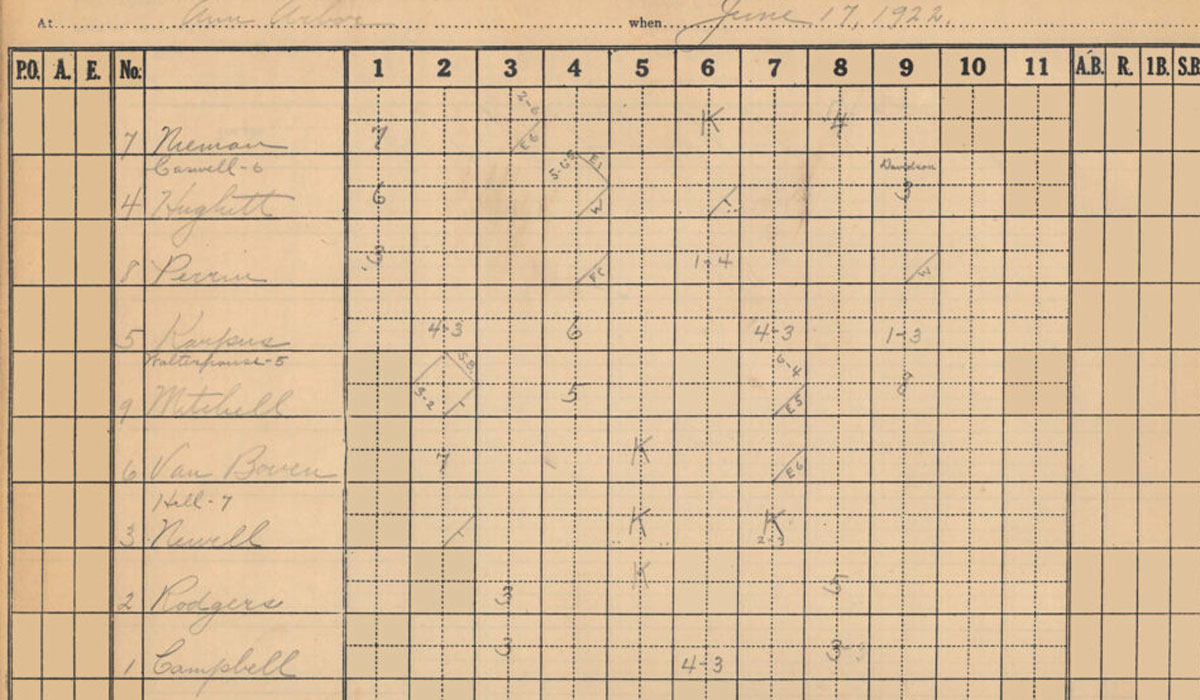 At Ann Arbor when June 17, 1922.
P.O. A. E. No. 1 2 3 4 5 6 7 8 9 10 11 A.B. R. 1B. S.B
2-6
7 Nieman 7 E6 K 4
Caswell-6 E1 Davidson
4 Hughitt 6 W 3
8 Perrin 3 FC 1-4 W
5 Karpus 4-3 6 4-3 1-3
Walterhouse-5 S.B. 6-4
9 Mitchell 3-2 5 E5 8
6 Van Boven 7 K E6
Hill-7
3 Newell K K
2-3
2 Rodgers 3 K 5
1 Campbell 3 4-3 3